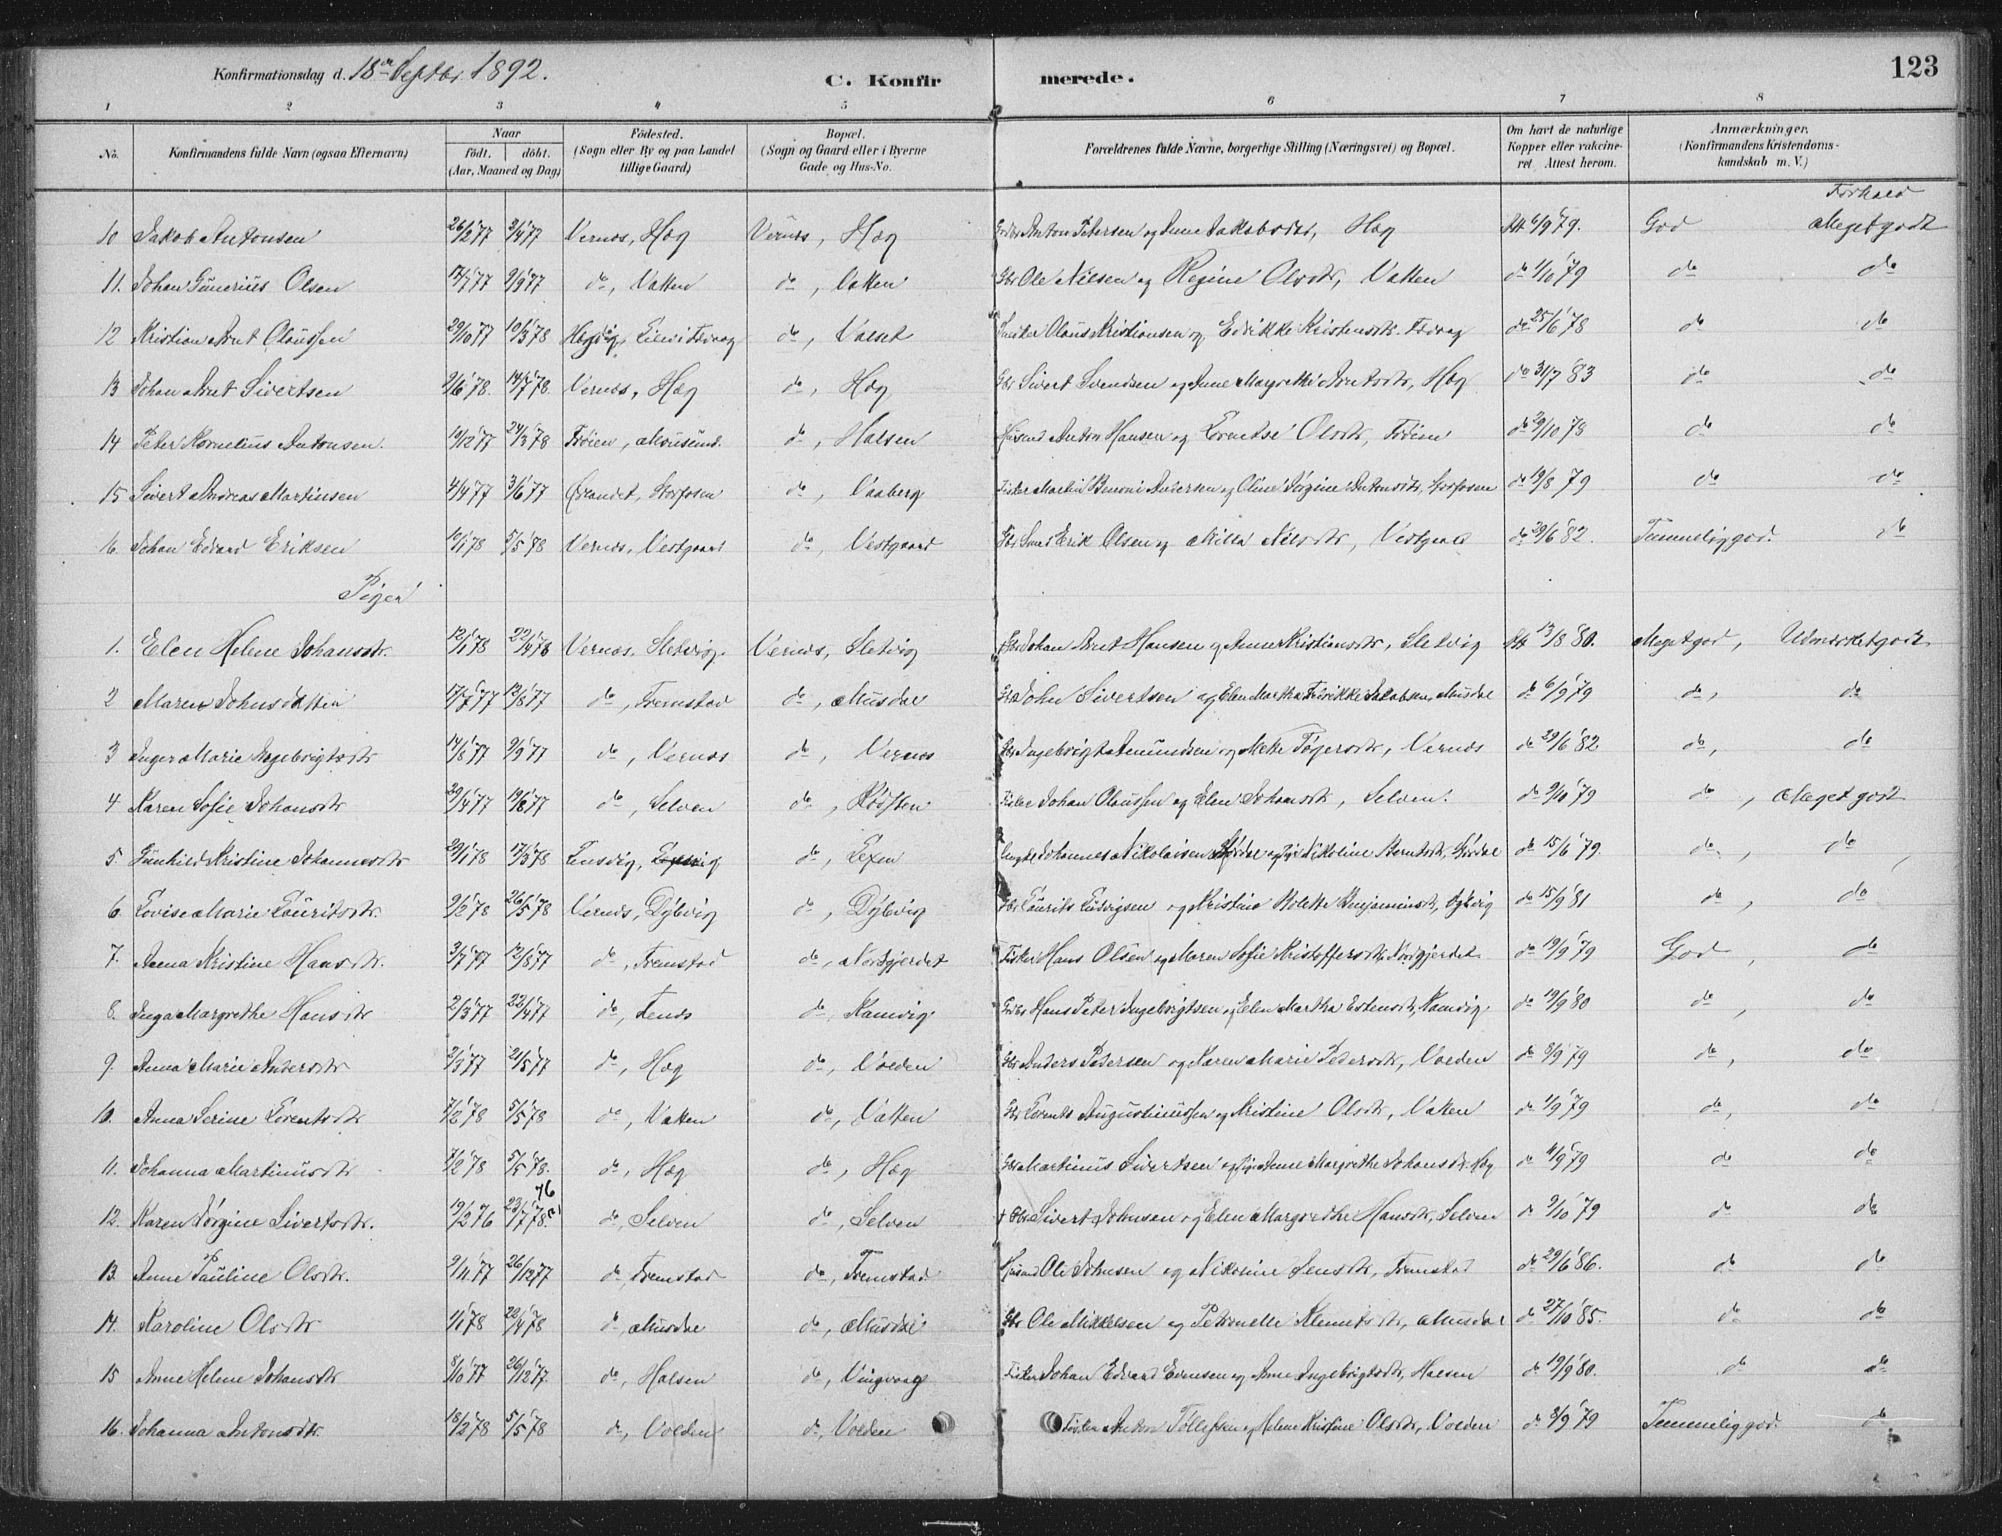 Konfirmationsdag d. 18de Septbr 1892.
C. Konfirmerede.
123
1 2 3 4 5 6 7 8
No.
Konfirmandens fulde Navn (ogsaa Efternavn)
Naar
födt. döbt.
(Aar, Maaned og Dag)
Födested.
(Sogn eller By og paa Landet
tillige Gaard)
Bopæl.
(Sogn og Gaard eller i Byerne
Gade og Hus-No.
Forældrenes fulde Navne, borgerlige Stilling (Næringsvei) og Bopæl.
Om havt de naturlige
Kopper eller vakcine-
ret. Attest herom.
Anmærkninger.
(Konfirmandens Kristendoms-
kundskab m. V.)
Forhold
10 Jakob Antonsen 26/2 77 2/4 77 Vernæs, Hæg Vernæs, Hæg Anton Petersen og Anne Jakobsdtr, Hæg Att 6/9 79. God Meget godt
11. Johan Gunerius Olsen 17/7 77 9/9 77 do, Vatten do, Vatten Gbr Ole Nilsen og Regine Olsdtr, Vatten do 1/10 79 do do
12 Kristian Arnt Olaussen 29/10 77 10/3 78 do, Valset Olaus Kristiansen og Edrikke Kristensdtr. do 25/6 78 do do
13 Johan Arnt Sivertsen 9/6 78. 14/7 78. Vernæs, Hæg do, Hæg Gbr Sivert Svendsen og Anne Margrethe Arntsdtr, Hæg do 31/7 83 do do
14 Peter Kornelius Antonsen. 19/12 77 24/3 78 Frøien, Mausund. do, Halsen Husmd Anton Hansen og Lorentse Olsdtr, Frøien do 29/10 78 do do
15 Sivert Andreas Martinsen 4/4 77 3/6 77 Ørlandet, Storfosen do, Vaaberg Fisker Martin Benoni Andersen og Oline Jørgine Antonsdtr, Storfosen do 19/8 79 do do
16. Johan Edvard Eriksen 10/1 78 5/5 78 Vernæs, Vestgaard do, Vestgaard Erik Olsen og Milla Nilsdtr, Vestgaard do 29/6 82. Temmelig god. do
Piger
1. Elen Helene Johansdtr. 12/1 78 22/4 78 Vernæs, Sletvig. Vernæs, Sletvig Gbr Johan Arnt Hansen og Anne Kristiansdtr, Sletvig Att 13/8 80. Meget god, Udmærket godt
2 Maren Johnsdatter 17/7 77 12/8 77 do, Fremstad do, Musdal Gbr John Sivertsen og Elen Martha Fredrikke Jakobsen, Musdal do 6/9 79 do, do
3 Inger Marie Ingebrigtsdtr 14/8 77 9/9 77 do, Vernæs do, Vernæs Gbr Ingebrigt Amundsen og Mette Tøgersdtr, Vernæs do 29/6 82 do, do
4 Karen Sofie Johansdtr 29/4 77 19/8 77 do, Selven do, Røiften Fisker Johan Olaussen og Elen Johansdtr, Selven. do 9/10 79 do, Meget godt
5. Gunhild Kristine Johannesdtr 29/1 78 17/3 78 Lensvig, do, Lexen Johannes Nikolaisen og Nikoline Berntsdtr, do 15/6 79. do, do
6. Lovise Marie Lauritsdtr. 9/2 78 26/5 78 Vernæs, Dybvig do, Dybvig Gbr Laurits Ludvigsen og Kristine Bolette Benjaminsdtr, Dybvig do 15/9 81 do, do
7. Anna Kristine Hansdtr. 3/7 77 12/8 77 do, Fremstad do, Nordgjerdet Fisker Hans Olsen og Maren Sofie Kristoffersdtr, Nordgjerdet. do 19/9 79 God, do
8. Inga Margrethe Hansdtr 2/3 77 22/4 77 do, Lenæs do, Kamvig. Hans Peter Ingebrigtsen og Elen Martha Estensdtr, Kamvig. do 19/9 80 do, do
9. Anna Marie Andersdtr 2/3 77 21/5 77 do, Hæg do, Volden Gbr Anders Petersen og Karen Marie Pedersdtr, Volden do 8/9 79 do, do
10. Anna Serine Lorentsdtr 7/2 78 5/5 78 do, Vatten do, Vatten Gbr Lorents Augustinussen og Kristine Olsdtr, Vatten do 1/9 79 do, do
11. Johanna Martinusdtr 7/2 78 5/5 78. do, Hæg do, Hæg Gbr Martinus Sivertsen og Anne Margrethe Johansdtr. Hæg do 4/9 79 do do
12. Karen Jørgine Sivertsdtr. 19/2 76 23/7 78. 76 do, Selven do, Selven + Gbr Sivert Johnsen og Elen Margrethe Hansdtr, Selven do 9/10 79 do do
13. Anne Pauline Olsdtr. 9/11 77 26/12 77 do, Fremstad do, Fremstad Husmd Ole Johnsen og Nikoline Jensdtr, Fremstad do 29/6 86. do do
14. Karoline Olsdtr 1/1 78 22/4 78 do, Musdal do, Musdal Gbr Ole Mikkelsen og Petronelle Klemetsdtr, Musdal do 27/10 85. do do
15 Anne Helene Johansdtr 8/10 77 26/12 77. do, Halsen do, Vingvaag Fisker Johan Edvard Evensen og Anne Ingebrigtsdtr, Halsen do 19/9 80. do do
16. Johanna Antonsdtr. 18/2 78 5/5 78 do, Volden do, Volden Fisker Anton Tollefsen og Helene Kristine Olsdtr, Volden do 8/9 79 Temmelig god. do